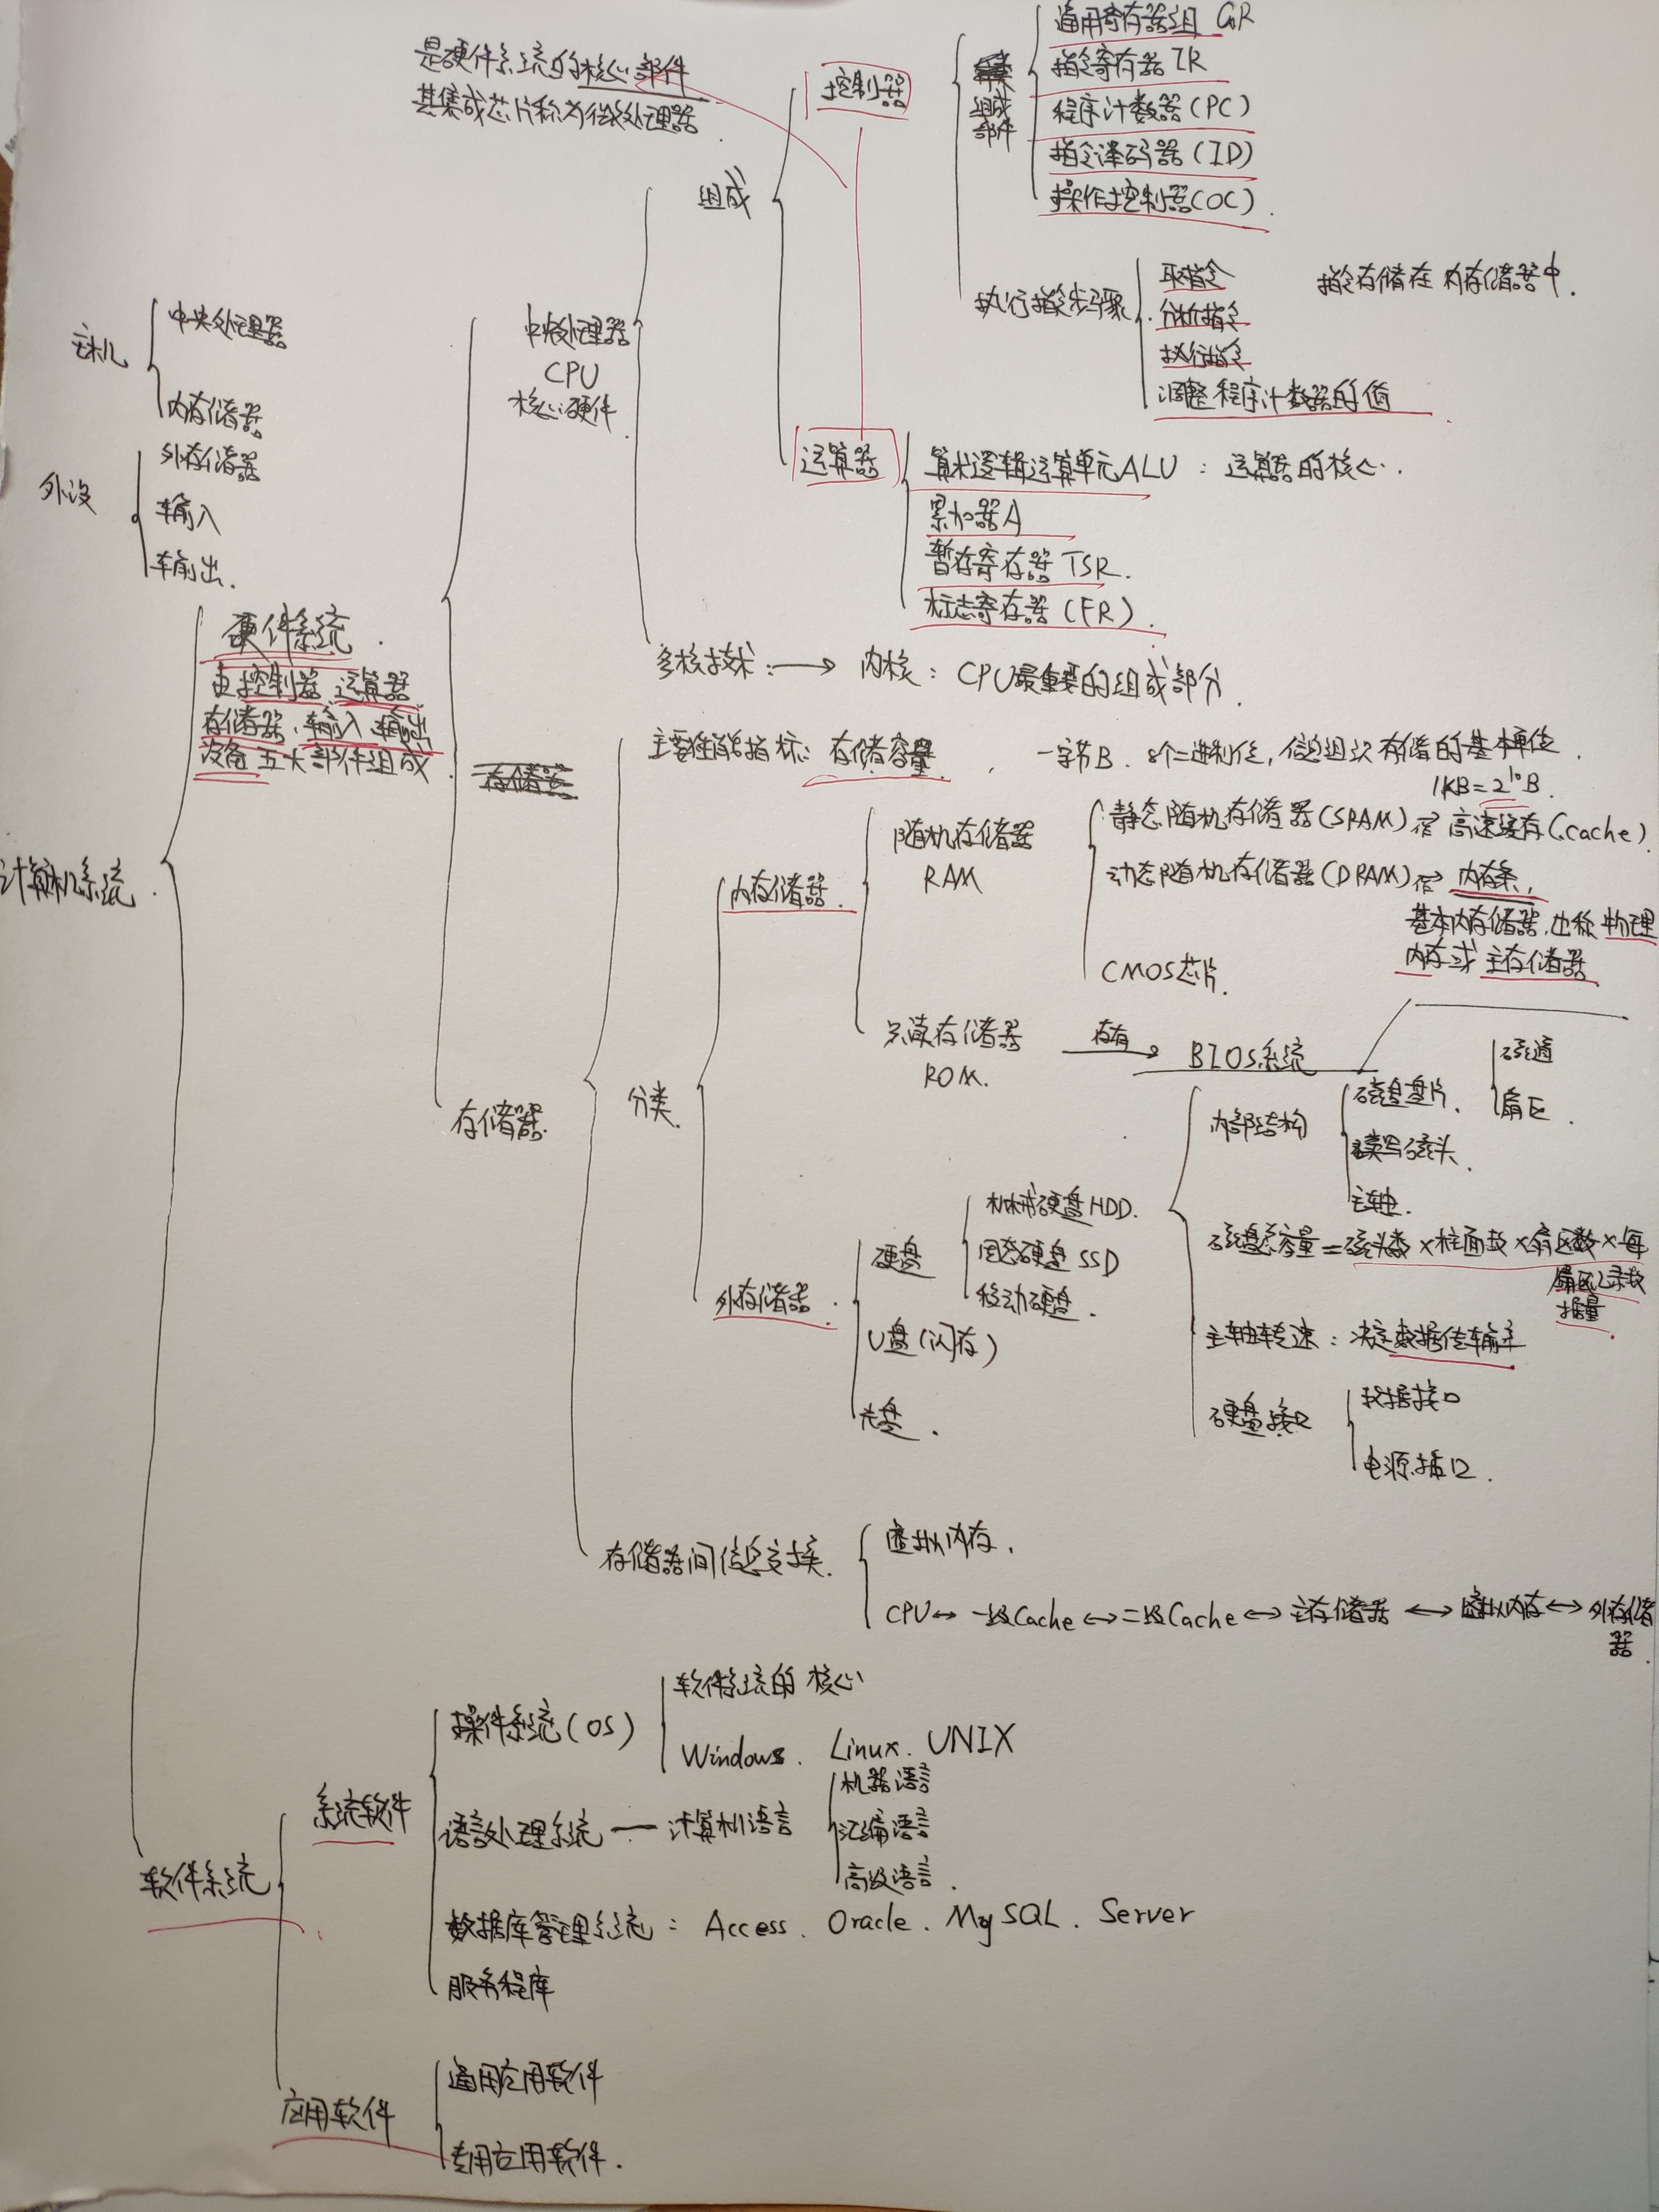 是硬件系统的核心部件
其集成芯片称为微处理器
组成
控制器
组成
部件
通用寄存器组 GR
指令寄存器 IR
程序计数器(PC)
指令译码器(ID)
操作控制器(OC).
执行指令步骤
取指令
分析指令
执行指令
调整程序计数器的值
指令存储在内存储器中.
主机
中央处理器
内存储器
外设
外存储器
输入
输出.
中央处理器
CPU
核心硬件
运算器
算术逻辑运算单元ALU : 运算器的核心.
累加器A
暂存寄存器 TSR.
标志寄存器(FR).
多核技术: → 内核: CPU最重要的组成部分.
硬件系统.
由控制器、运算器
存储器、输入、输出
设备五大部件组成
计算机系统.
存储器
主要性能指标: 存储容量. 一字节B. 8个二进制位, 信息组织存储的基本单位.
1KB=2¹⁰B.
分类.
内存储器.
随机存储器
RAM
静态随机存储器(SRAM) 高速缓存(cache)
动态随机存储器(DRAM) 内存条,
基本内存储器,也称物理
内存或主存储器
CMOS芯片.
只读存储器
ROM.
存有
BIOS系统
外存储器.
硬盘
机械硬盘HDD.
固态硬盘SSD
移动硬盘.
U盘(闪存)
光盘.
内部结构
磁盘盘片.
读写磁头.
主轴.
磁道
扇区.
磁盘总容量=磁头数×柱面数×扇区数×每
扇区记录数
据量.
主轴转速: 决定数据传输率
硬盘接口
数据接口
电源插口.
存储器间信息交换.
虚拟内存.
CPU↔一级Cache↔二级Cache↔主存储器↔虚拟内存↔外存储
器.
软件系统
系统软件
操作系统(OS)
软件系统的核心
Windows. Linux. UNIX
语言处理系统 — 计算机语言
机器语言
汇编语言
高级语言.
数据库管理系统: Access. Oracle. MySQL. Server
服务程序
应用软件
通用应用软件
专用应用软件.